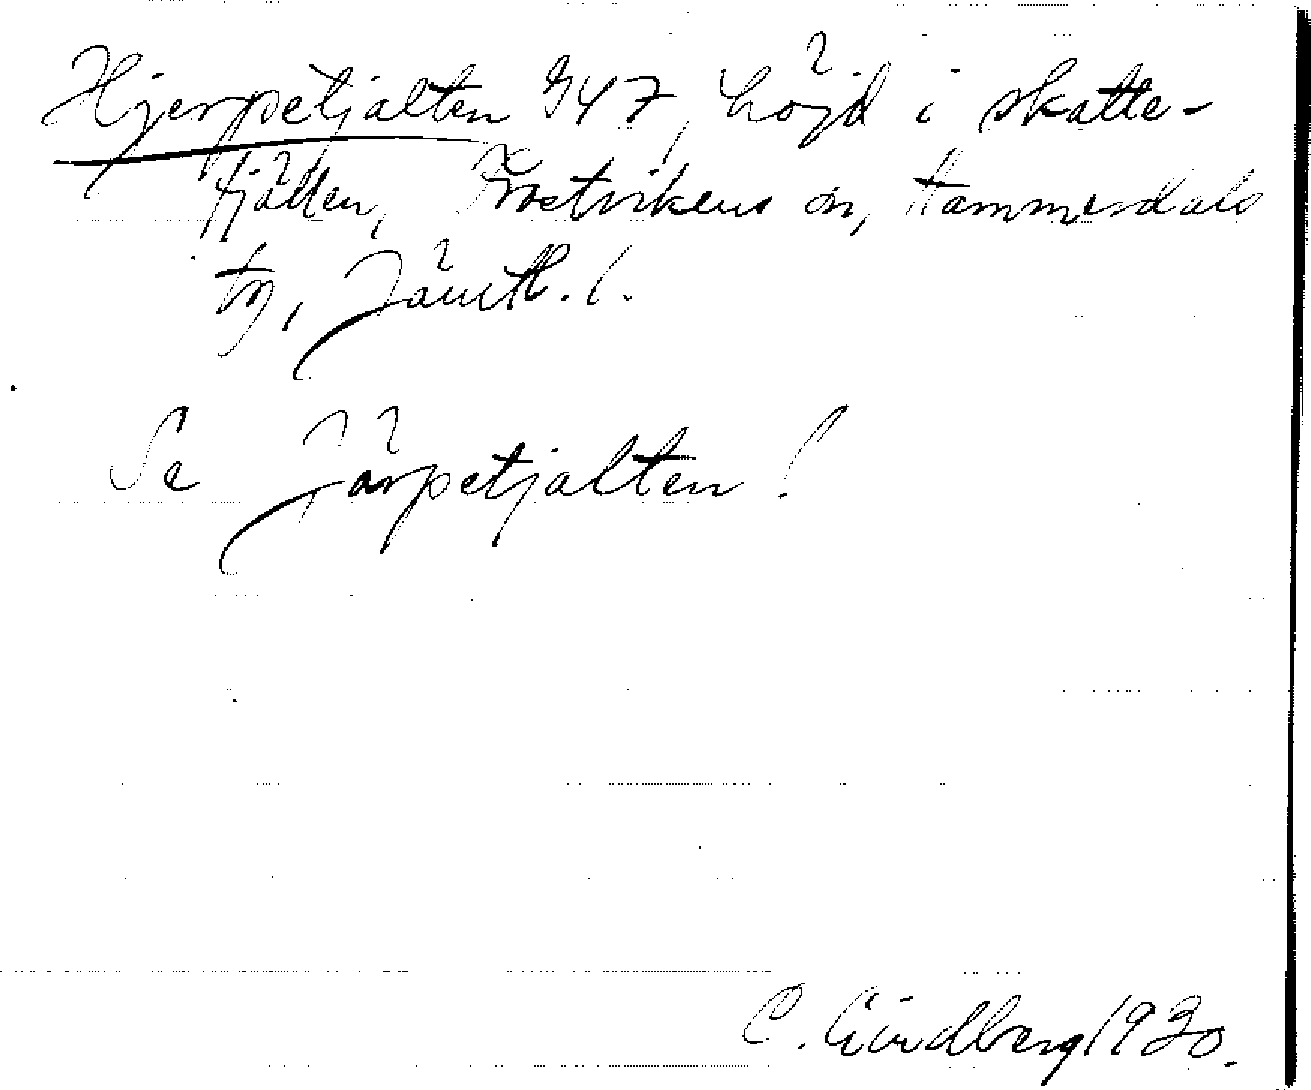 Hjerpetjälten 947, höjd i skatte-
fjällen, Frostvikens sn, Hammerdals
tg, Jämtl. l.
Se Järpetjälten!
C. Lindberg 1930.